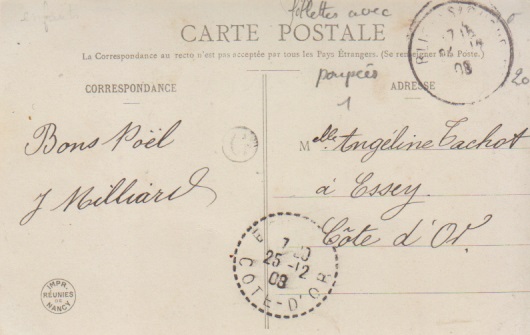 enfants
fillettes avec
CARTE POSTALE
La Correspondance au recto n'est pas acceptée par tous les Pays Étrangers. (Se renseigner à la Poste.)
poupées
CORRESPONDANCE
ADRESSE
1
20
Bons Noël
J Milliard
Melle Angéline Tachot
à Essey
Côte d'Or
7
25-12
08
COTE-D'OR
08
IMPR.
RÉUNIES
DE
NANCY